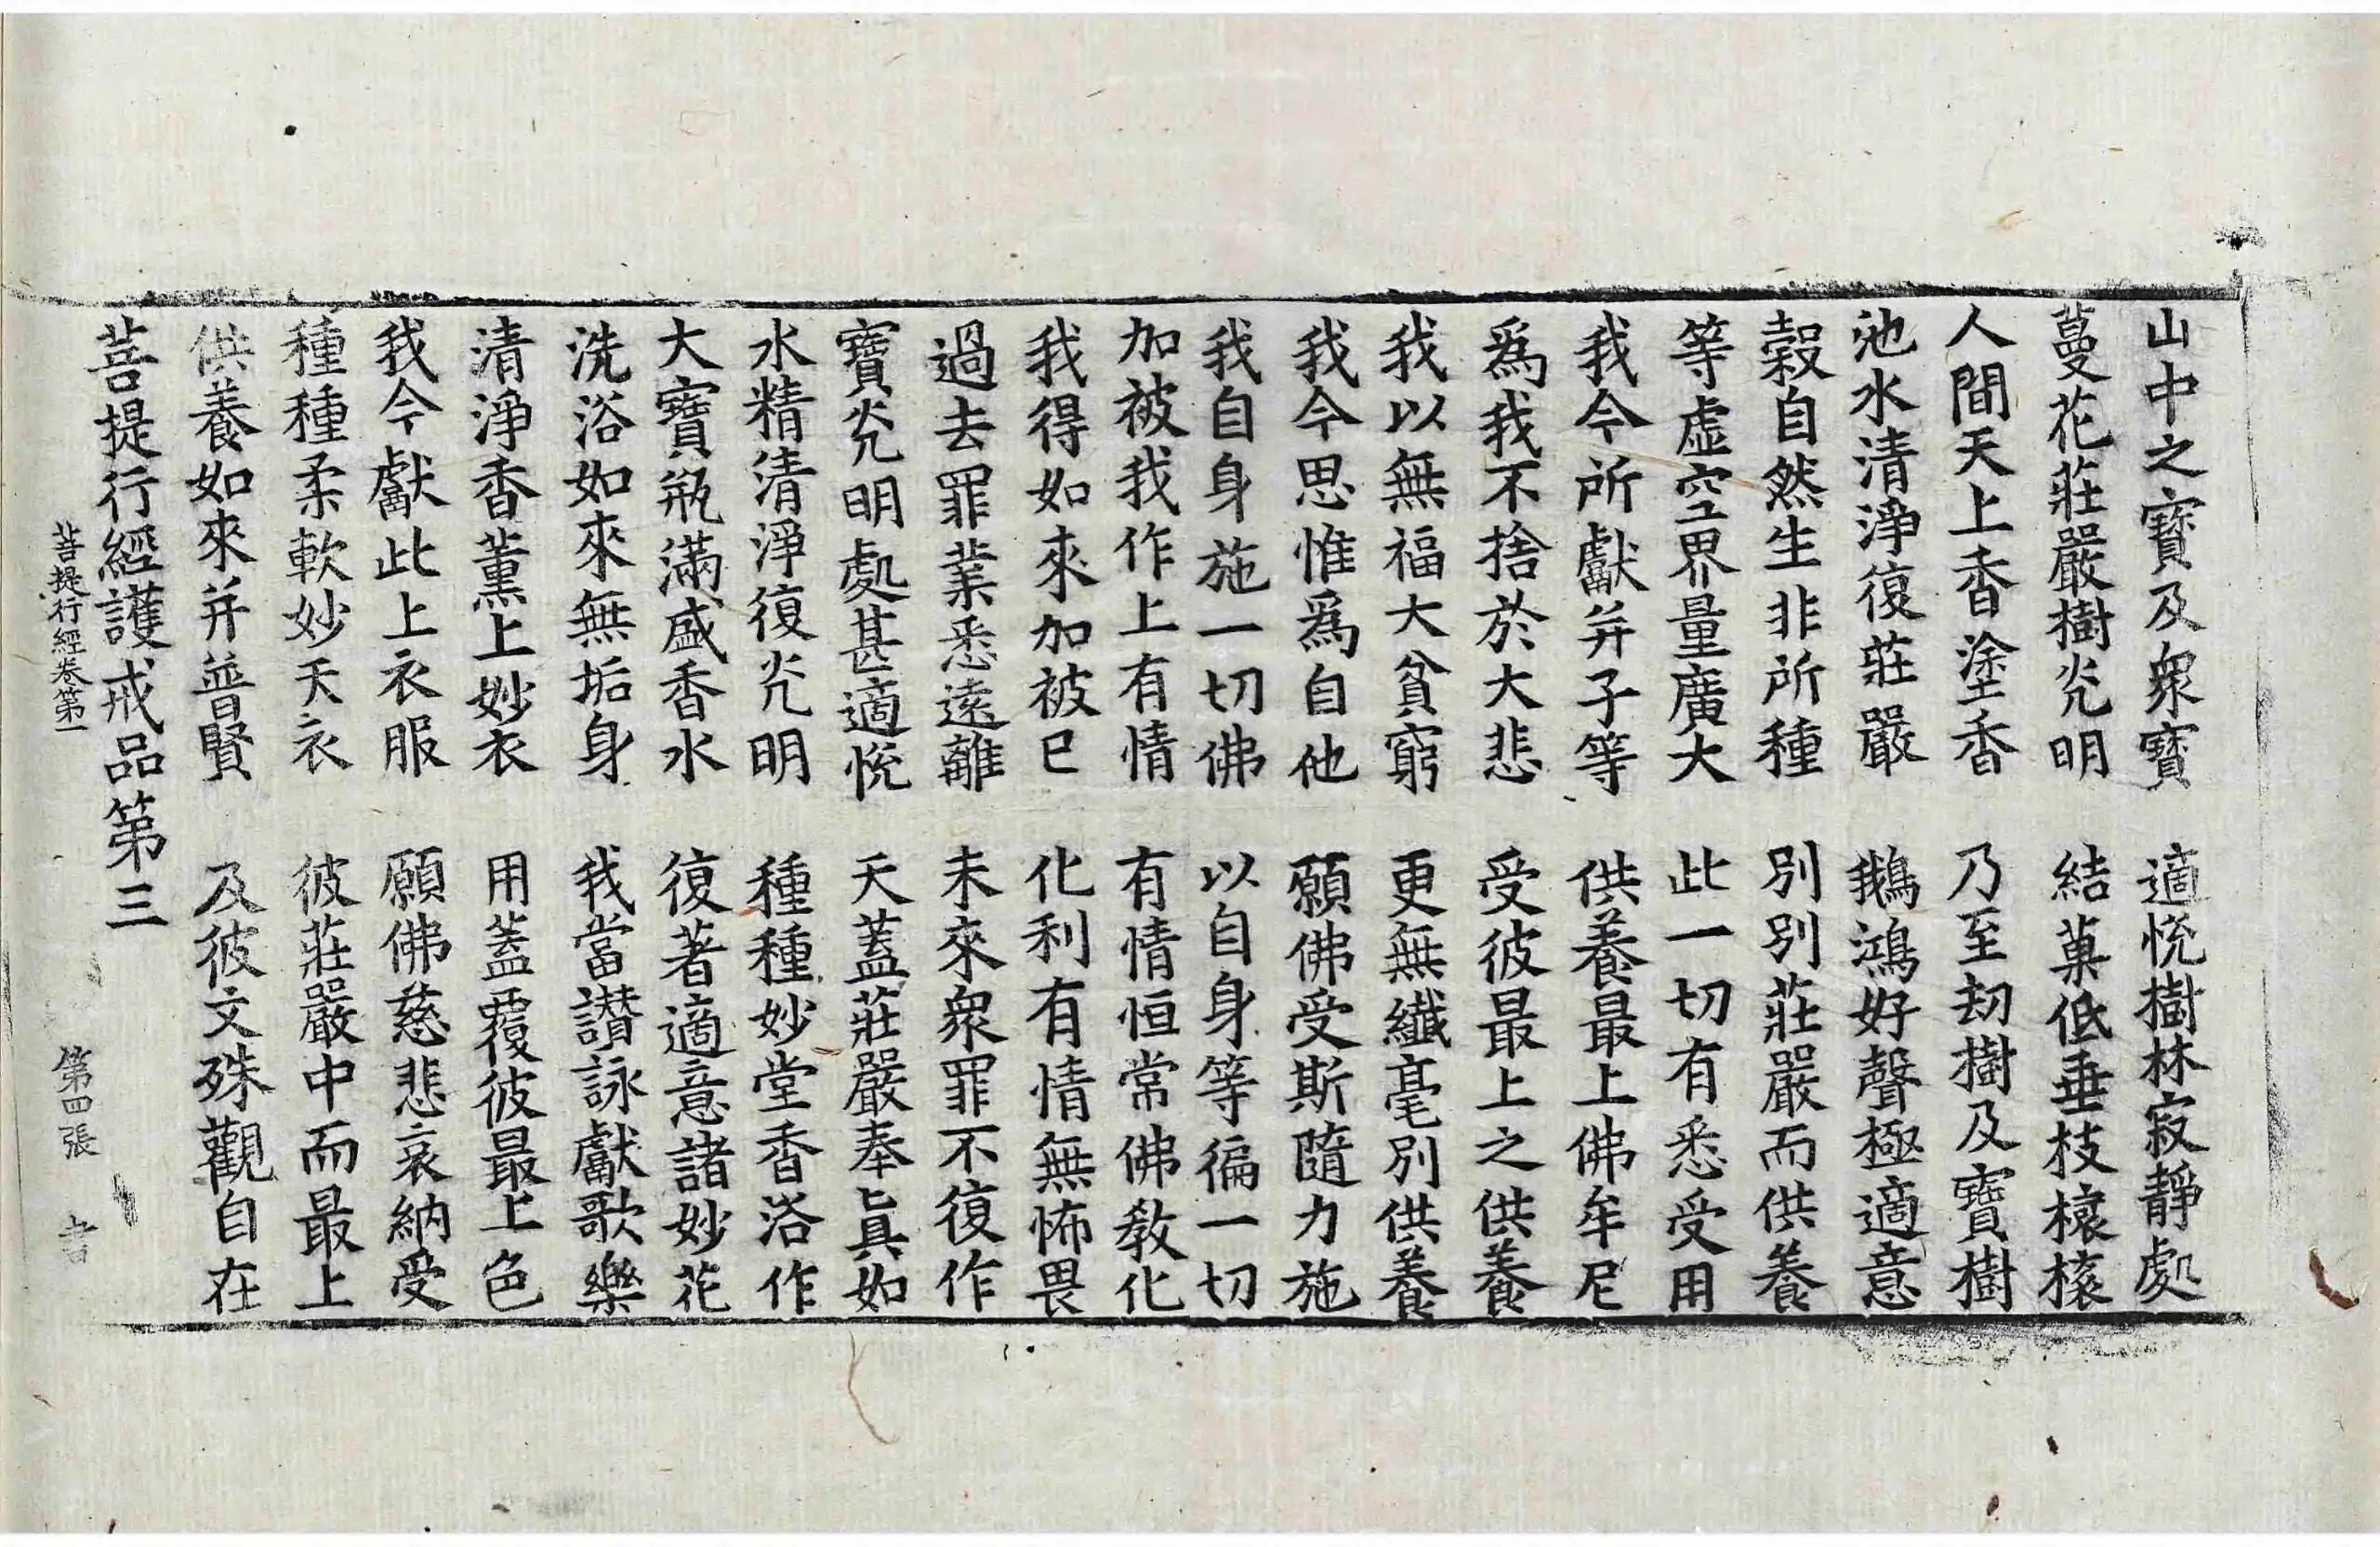 山中之寶及衆寶　適悅樹林寂靜處
蔓花莊嚴樹光明　結菓低垂枝榱榱
人間天上香塗香　乃至劫樹及寶樹
池水清淨復莊嚴　鵝鴻好聲極適意
穀自然生非所種　別別莊嚴而供養
等虛空界量廣大　此一切有悉受用
我今所獻并子等　供養最上佛牟尼
爲我不捨於大悲　受彼最上之供養
我以無福大貧窮　更無纖毫別供養
我今思惟爲自他　願佛受斯隨力施
我自身施一切佛　以自身等徧一切
加被我作上有情　有情恒常佛教化
我得如來加被已　化利有情無怖畏
過去罪業悉遠離　未來衆罪不復作
寶光明處甚適悅　天蓋莊嚴奉眞如
水精清淨復光明　種種妙堂香浴作
大寶甁滿盛香水　復著適意諸妙花
洗浴如來無垢身　我當讃詠獻歌樂
清淨香薰上妙衣　用蓋覆彼最上色
我今獻此上衣服　願佛慈悲哀納受
種種柔軟妙天衣　彼莊嚴中而最上
供養如來并普賢　及彼文殊觀自在
菩提行經護戒品第三
菩提行經卷第一　第四張